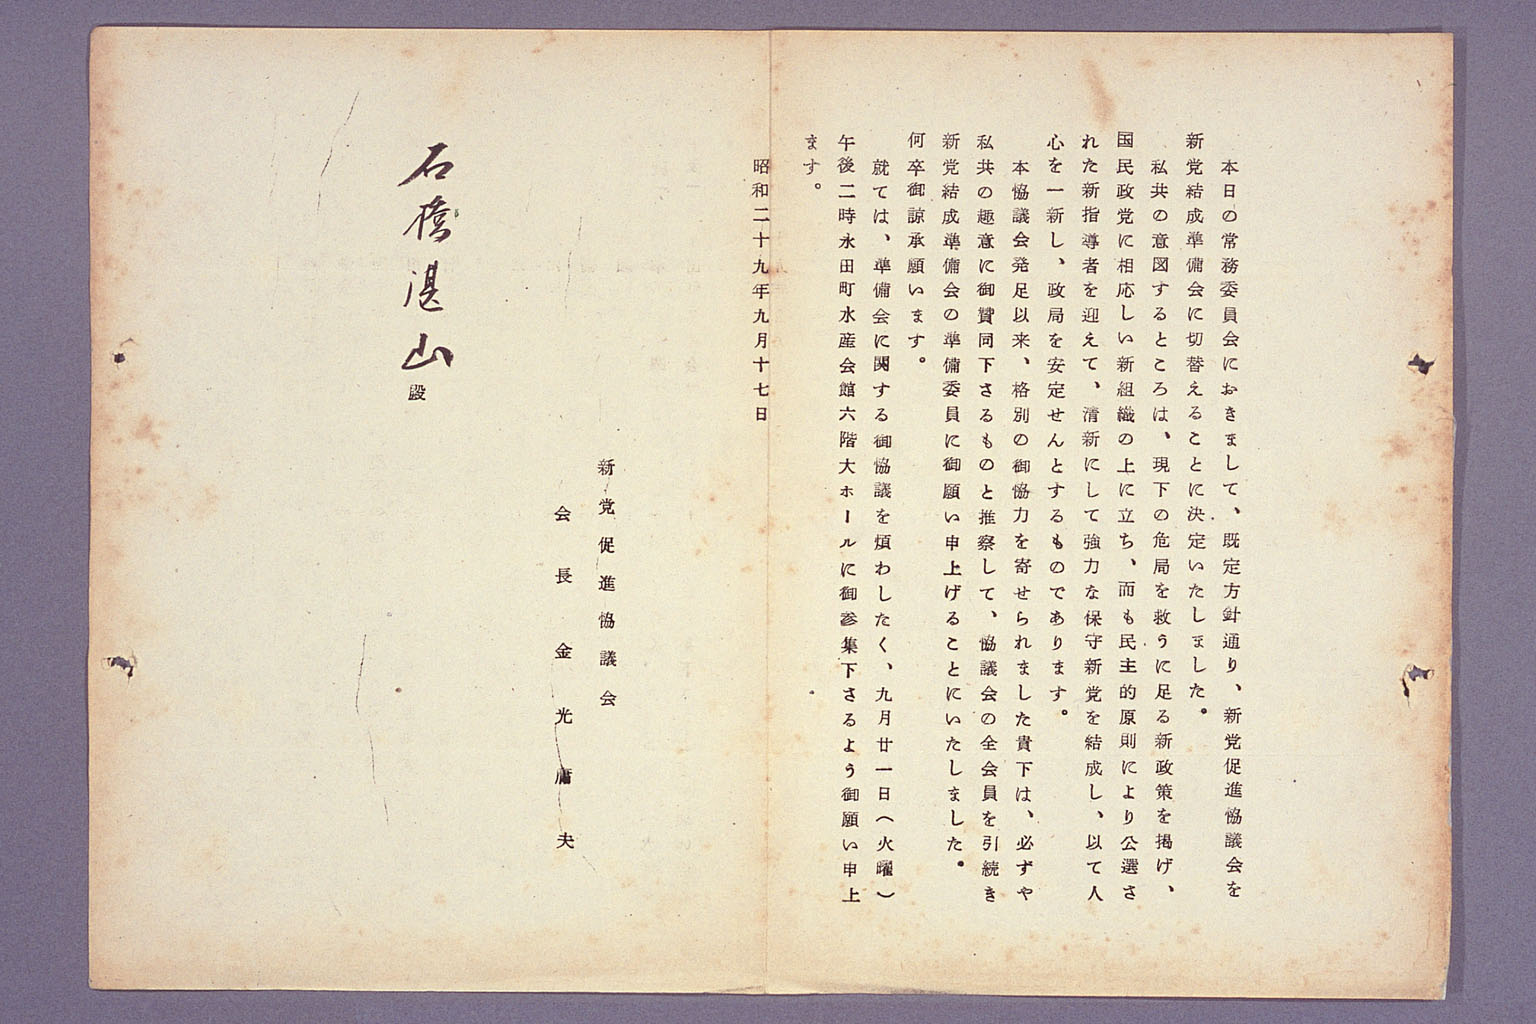 本日の常務委員会におきまして、既定方針通り、新党促進協議会を
新党結成準備会に切替えることに決定いたしました。
私共の意図するところは、現下の危局を救うに足る新政策を掲げ、
国民政党に相応しい新組織の上に立ち、而も民主的原則により公選さ
れた新指導者を迎えて、清新にして強力な保守新党を結成し、以て人
心を一新し、政局を安定せんとするものであります。
本協議会発足以来、格別の御協力を寄せられました貴下は、必ずや
私共の趣意に御賛同下さるものと推察して、協議会の全会員を引続き
新党結成準備会の準備委員に御願い申上げることにいたしました。
何卒御諒承願います。
就ては、準備会に関する御協議を煩わしたく、九月廿一日（火曜）
午後二時永田町水産会館六階大ホールに御参集下さるよう御願い申上
ます。
昭和二十九年九月十七日
新党促進協議会
会長金光庸夫
石橋湛山殿